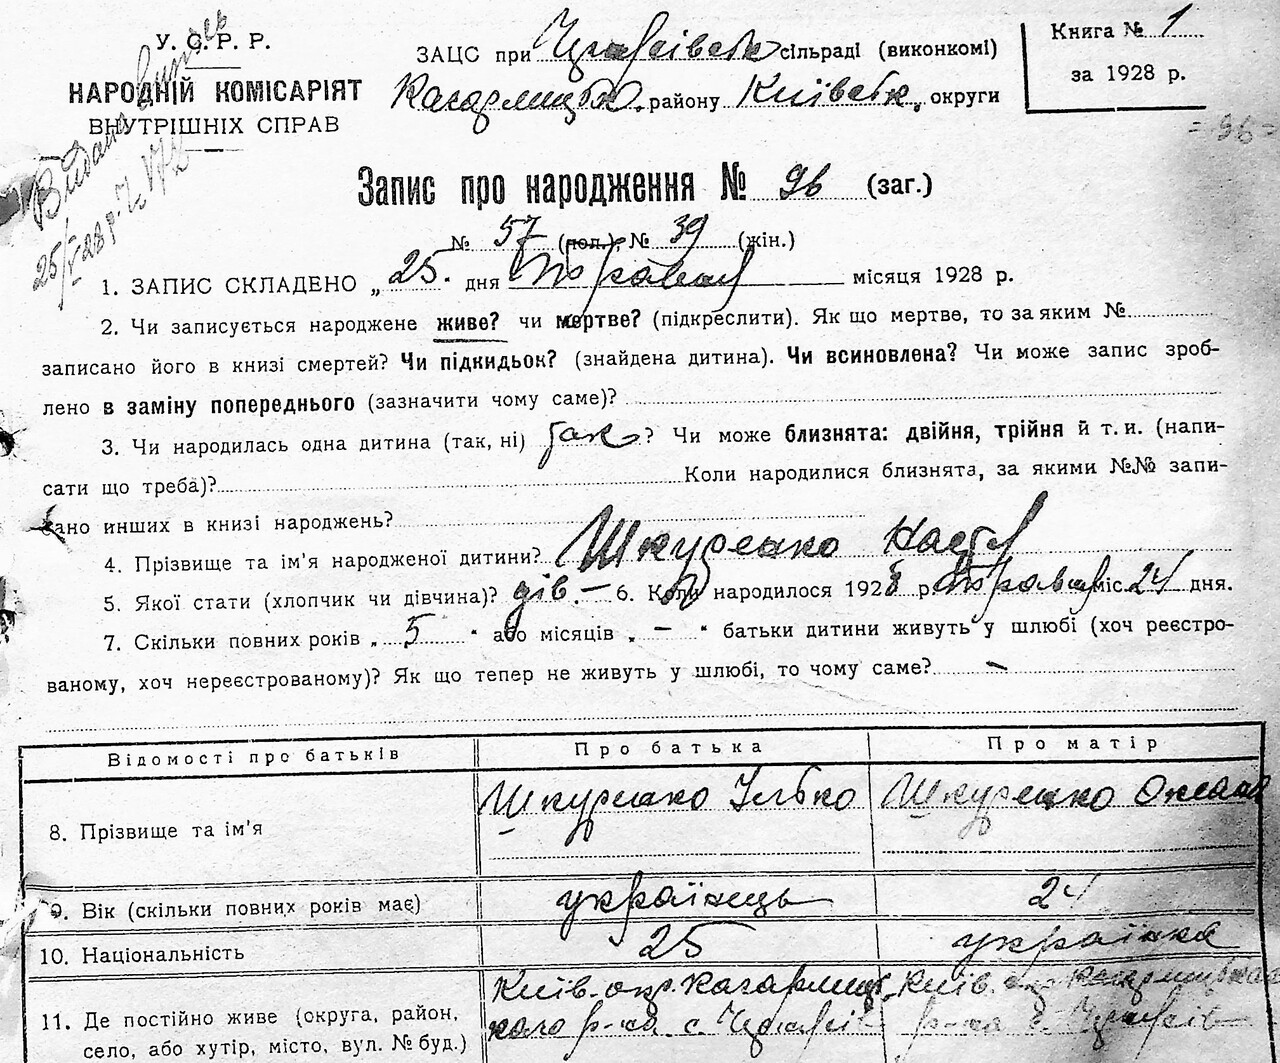 У. С. Р. Р.
НАРОДНІЙ КОМІСАРІЯТ
ВНУТРІШНІХ СПРАВ
ЗАЦС при сільраді (виконкомі)
Кагарлицьк. району Київськ. округи
Книга № 1
за 1928 р.
= 96 =
Запис про народження № 96 (заг.)
№ 57 (пол.), № 39 (жін.)
1. ЗАПИС СКЛАДЕНО „ 25 . дня Травня місяця 1928 р.
2. Чи записується народжене живе? чи мертве? (підкреслити). Як що мертве, то за яким №
записано його в книзі смертей? Чи підкидьок? (знайдена дитина). Чи всиновлена? Чи може запис зроб-
лено в заміну попереднього (зазначити чому саме)?
3. Чи народилась одна дитина (так, ні) так ? Чи може близнята: двійня, трійня й т. и. (напи-
сати що треба)? Коли народилися близнята, за якими №№ запи-
сано инших в книзі народжень?
4. Прізвище та ім'я народженої дитини? Шкуренко Настя
5. Якої стати (хлопчик чи дівчина)? дів. – 6. Коли народилось 1928 р. Травня міс. 24 дня.
7. Скільки повних років „ 5 “ або місяців „ – “ батьки дитини живуть у шлюбі (хоч реєстро-
ваному, хоч нереєстрованому)? Як що тепер не живуть у шлюбі, то чому саме? –
Відомості про батьків Про батька Про матір
8. Прізвище та ім'я Шкуренко Ілько Шкуренко Оксана
9. Вік (скільки повних років має) українець 24
10. Національність 25 українка
11. Де постійно живе (округа, район, Київ. окр. Кагарлиць- Київ. окр. Кагарлицька
село, або хутір, місто, вул. № буд.) кого р-на с. р-на с.